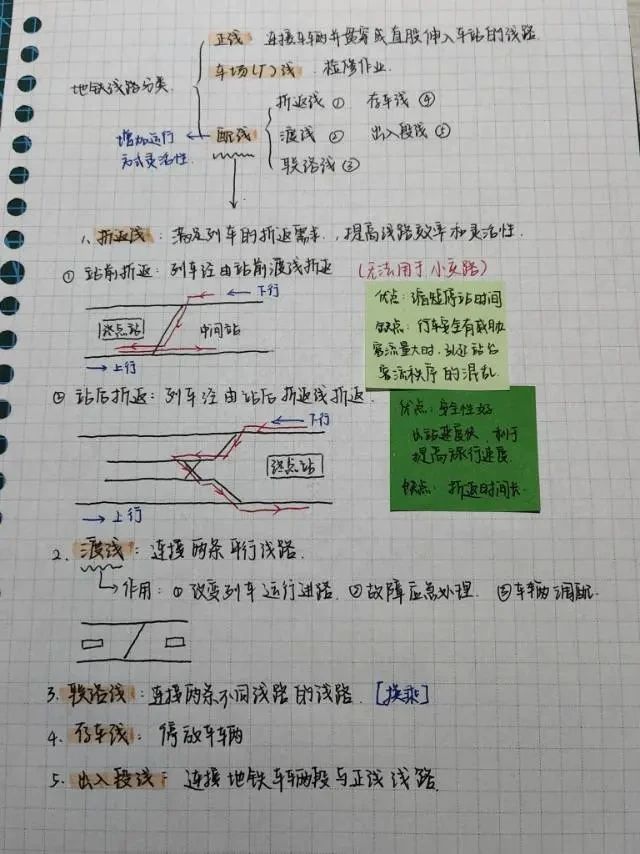 正线 连接车辆并贯穿或直股伸入车站的线路.
地铁线路分类.
车场(厂)线. 检修作业.
折返线 ① 存车线 ④
增加运行
方式灵活性.
配线
渡线 ② 出入段线 ⑤
联络线 ③
1、折返线: 满足列车的折返需求, 提高线路效率和灵活性.
① 站前折返: 列车经由站前渡线折返 (无法用于小交路)
下行
终点站
中间站
上行
优点: 缩短停站时间
缺点: 行车安全有威胁
客流量大时, 引起站台
客流秩序的混乱.
② 站后折返: 列车经由站后折返线折返.
下行
终点站
上行
优点: 安全性好
出站速度快, 利于
提高旅行速度.
缺点: 折返时间长.
2. 渡线: 连接两条平行线路.
作用: ①改变列车运行进路. ②故障应急处理. ③车辆调配.
3. 联络线: 连接两条不同线路的线路. [换乘]
4. 存车线: 停放车辆
5. 出入段线: 连接地铁车辆段与正线线路.